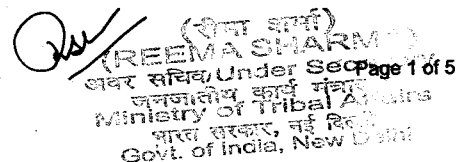 (रीमा शर्मा)
(REEMA SHARMA)
अवर सचिव/Under Secretary
Page 1 of 5
जनजातीय कार्य मंत्रालय
Ministry of Tribal Affairs
भारत सरकार, नई दिल्ली
Govt. of India, New Delhi